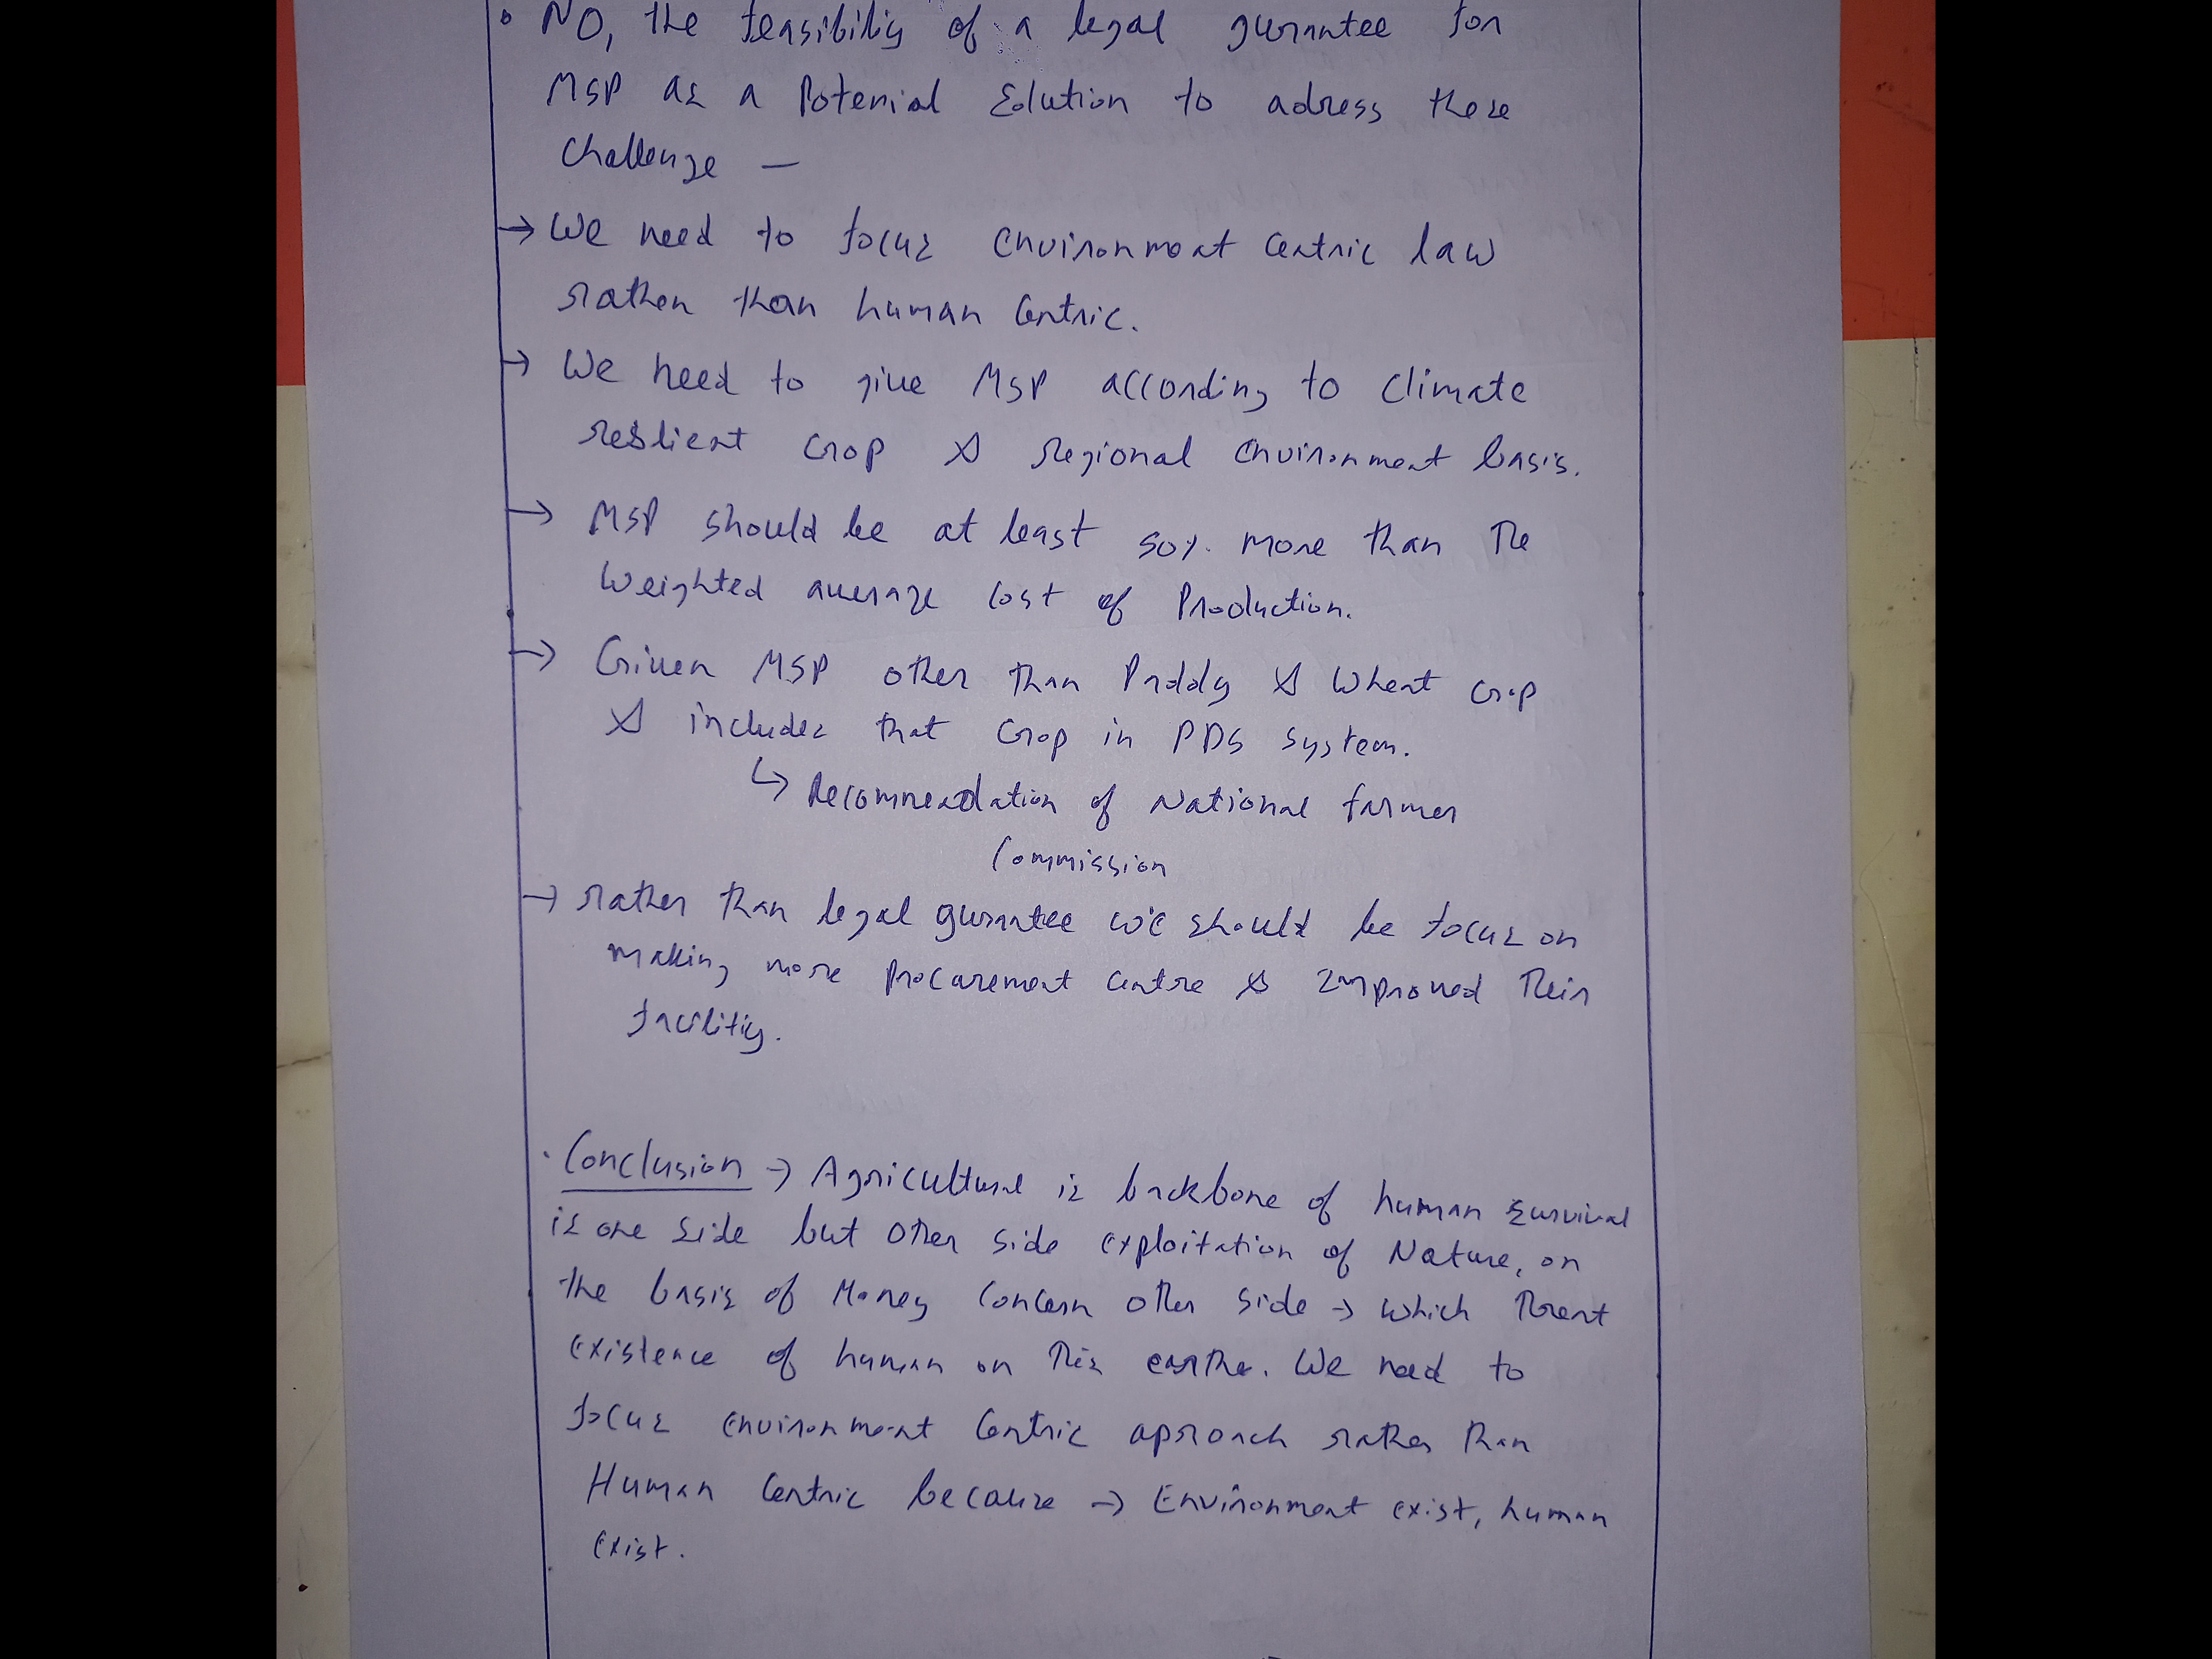 • NO, the feasibility of a legal gurantee for
MSP as a Potenial Solution to adress these
challenge —
→ We need to focus environment centric law
rather than human centric.
→ We need to give MSP according to climate
reslient crop & regional environment basis.
→ MSP should be at least 50%. more than the
weighted average cost of Production.
→ Given MSP other than Paddy & wheat crop
& includes that crop in PDS system.
↳ Recommendation of National farmer
Commission
→ rather than legal gurantee we should be focus on
making more procurement centre & Improved their
facility.
• Conclusion → Agricultural is backbone of human survival
is one side but other side exploitation of Nature, on
the basis of Money concern other side → which threat
existence of human on this earthe. We need to
focus environment centric aproach rather than
Human centric because → Environment exist, human
exist.